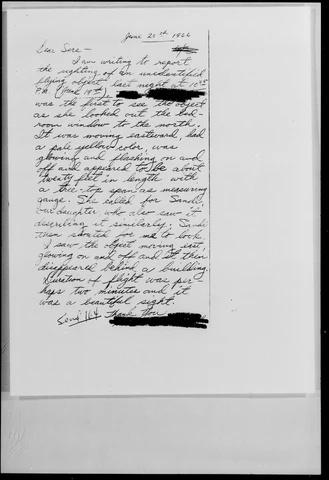 June 20th 1966
Dear Sirs -
I am writing to report
the sighting of an unidentified
flying object, last night at
P.M. (June 19th),
was the first to see the object
as she looked out the bed-
room window to the north.
It was moving eastward, had
a pale yellow color, was
glowing and flashing on and
off and appeared to be about
twenty feet in length with
a tree top span as measuring
gauge. She called for Sandi,
our daughter, who also saw it
describing it similarly; Sandi
then shouted for me to look
I saw the object moving east,
glowing on and off and it then
disappeared behind a building.
Duration of flight was per-
haps two minutes and it
was a beautiful sight.
Send 164 Thank You